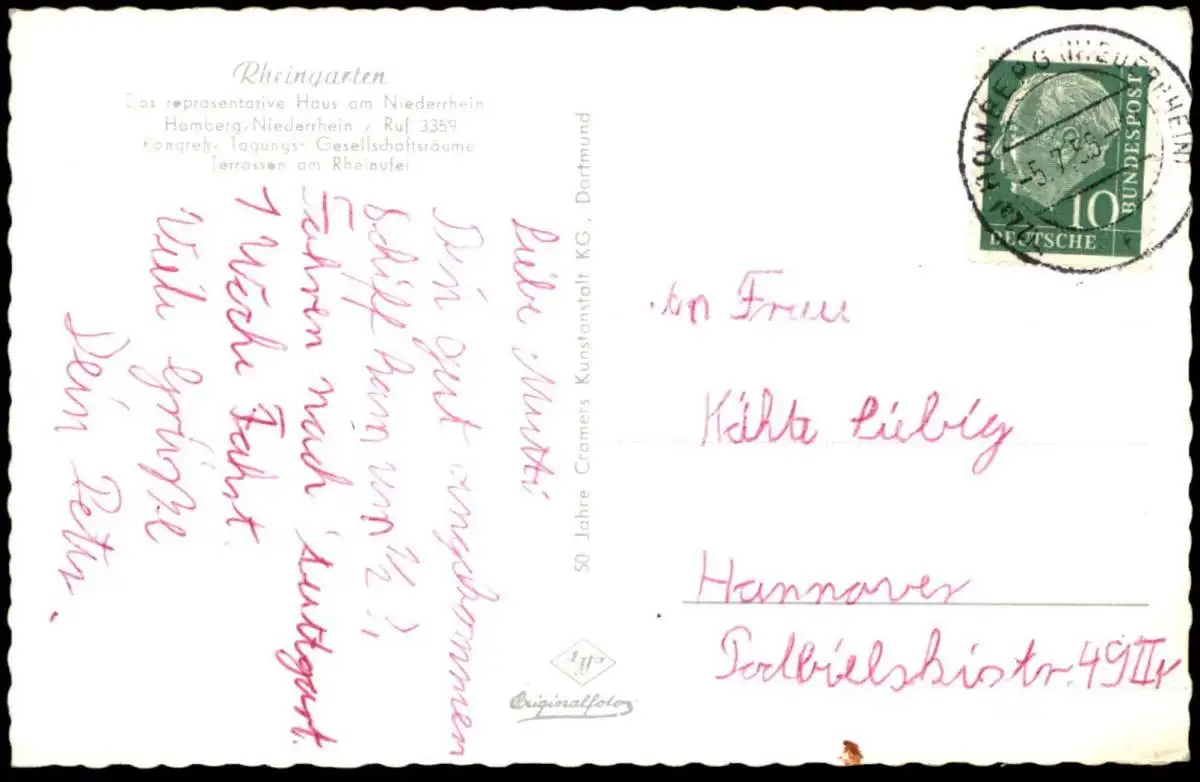 Rheingarten
Das repräsentative Haus am Niederrhein
Homberg/Niederrhein / Ruf 3359
Kongreß- Tagungs- Gesellschaftsräume
Terrassen am Rheinufer
Liebe Mutti
Bin gut angekommen
Schiff kam um ½ 2
Fahren nach Suttgart.
1 Woche Fahrt.
Viele Grüße
Dein Peter.
50 Jahre Cramers Kunstanstalt KG, Dortmund
Originalfoto
HOMBERG (NIEDERRHEIN)
-5.7.56
10
DEUTSCHE
BUNDESPOST
An Frau
Kähte Liebig
Hannover
Podbielskistr. 49 II r